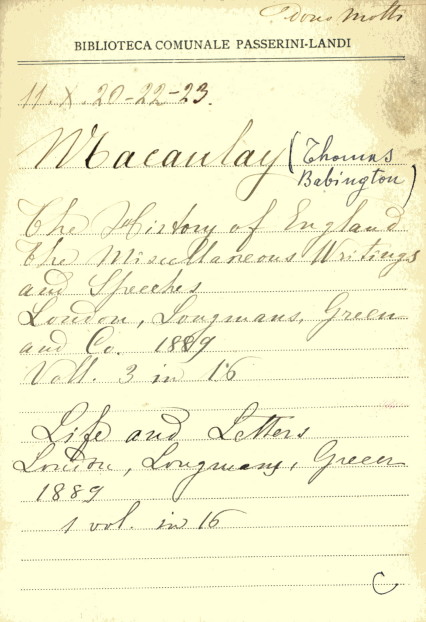 dono Motti
BIBLIOTECA COMUNALE PASSERINI-LANDI
11. X. 20-22-23.
Macaulay (Thomas
Babington)
The History of England
The Miscellaneous Writings
and Speeches
London, Longmans, Green
and Co. 1889
Voll. 3 in 16
Life and Letters
London, Longmans, Green
1889
1 vol. in 16
C